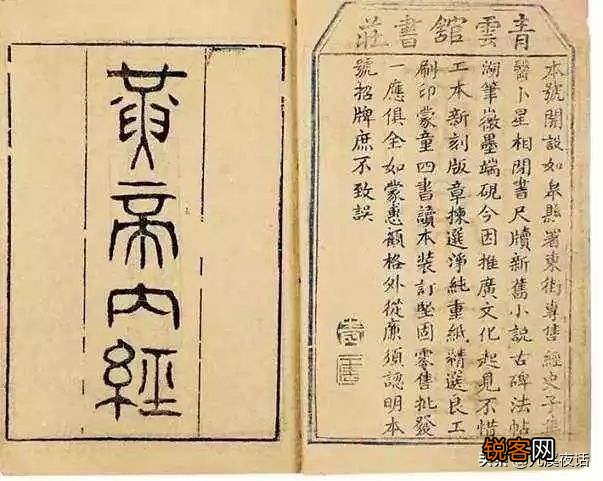 青雲舘書莊
本號開設如皋縣署東街專售經史子集
醫卜星相閒書尺牘新舊小說古碑法帖
湖筆徽墨端硯今因推廣文化起見不惜
工本新刻版章揀選淨純重紙精選良工
刷印蒙童四書讀本裝訂堅固零售批發
一應俱全如蒙惠顧格外從廉須認明本
號招牌庶不致誤
黃帝內經
锐客网
头条@九溪夜话